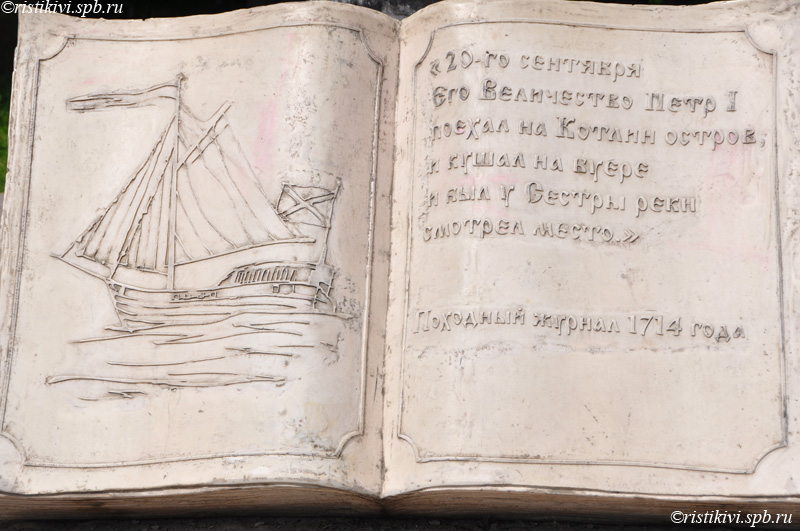 ©ristikivi.spb.ru
«20-го сентября
Его Величество Петр I
поехал на Котлин остров,
и кушал на вуере
и был у Сестры реки
смотрел место.»
Походный журнал 1714 года
©ristikivi.spb.ru